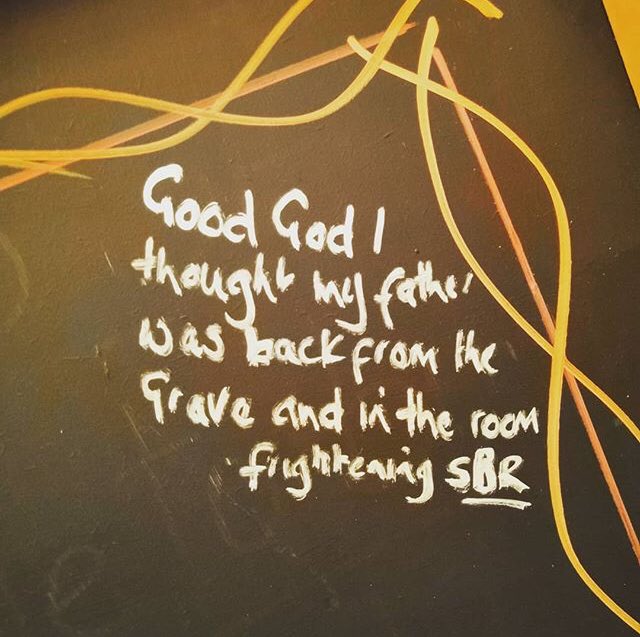 Good God I
thought my father
was back from the
Grave and in the room
frightening SBR